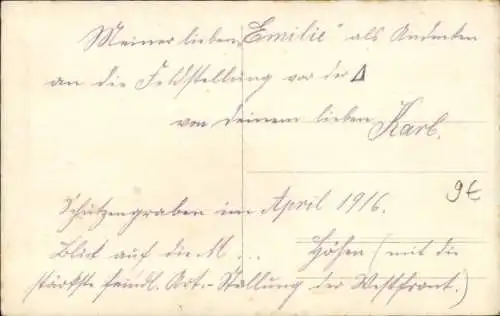 Meiner lieben "Emilie" als Andenken
an die Feldstellung vor der Δ
von deinem lieben Karl.
9€
Schützengraben im April 1916.
Blick auf die M... Höhen (mit die
stärkste feindl. Art.-Stallung der Westfront.)